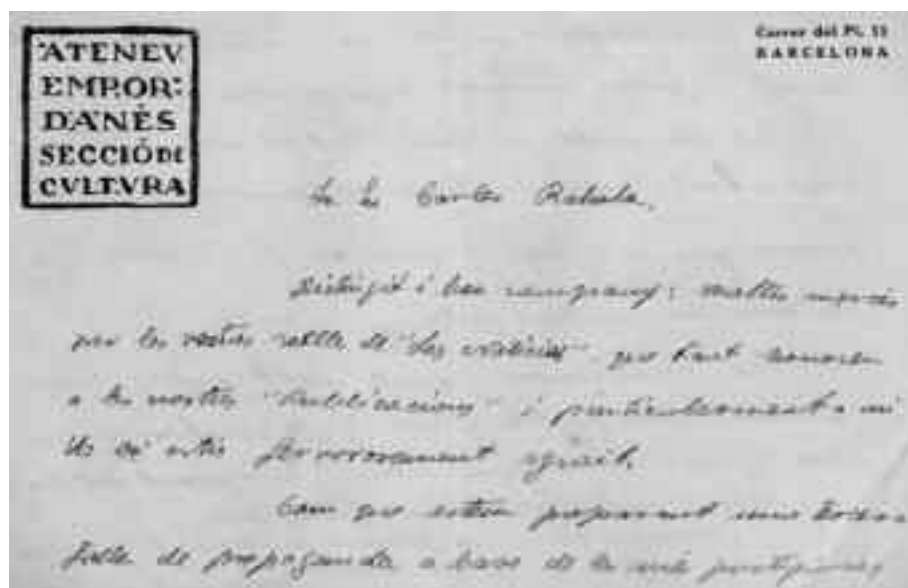 ATENEV
EMPOR:
DANÈS
SECCIÓ DE
CVLTVRA
Carrer del Pi, 11
BARCELONA
Carles Rahola.
Distingit i company: moltes mercès
per les ratlles de "Las Noticias" que tant honoren
a les nostres "Publicacions" i particularment a mi
Us estic fervorosament agraït.
Com que estem preparant una
fulla de propaganda a base de la